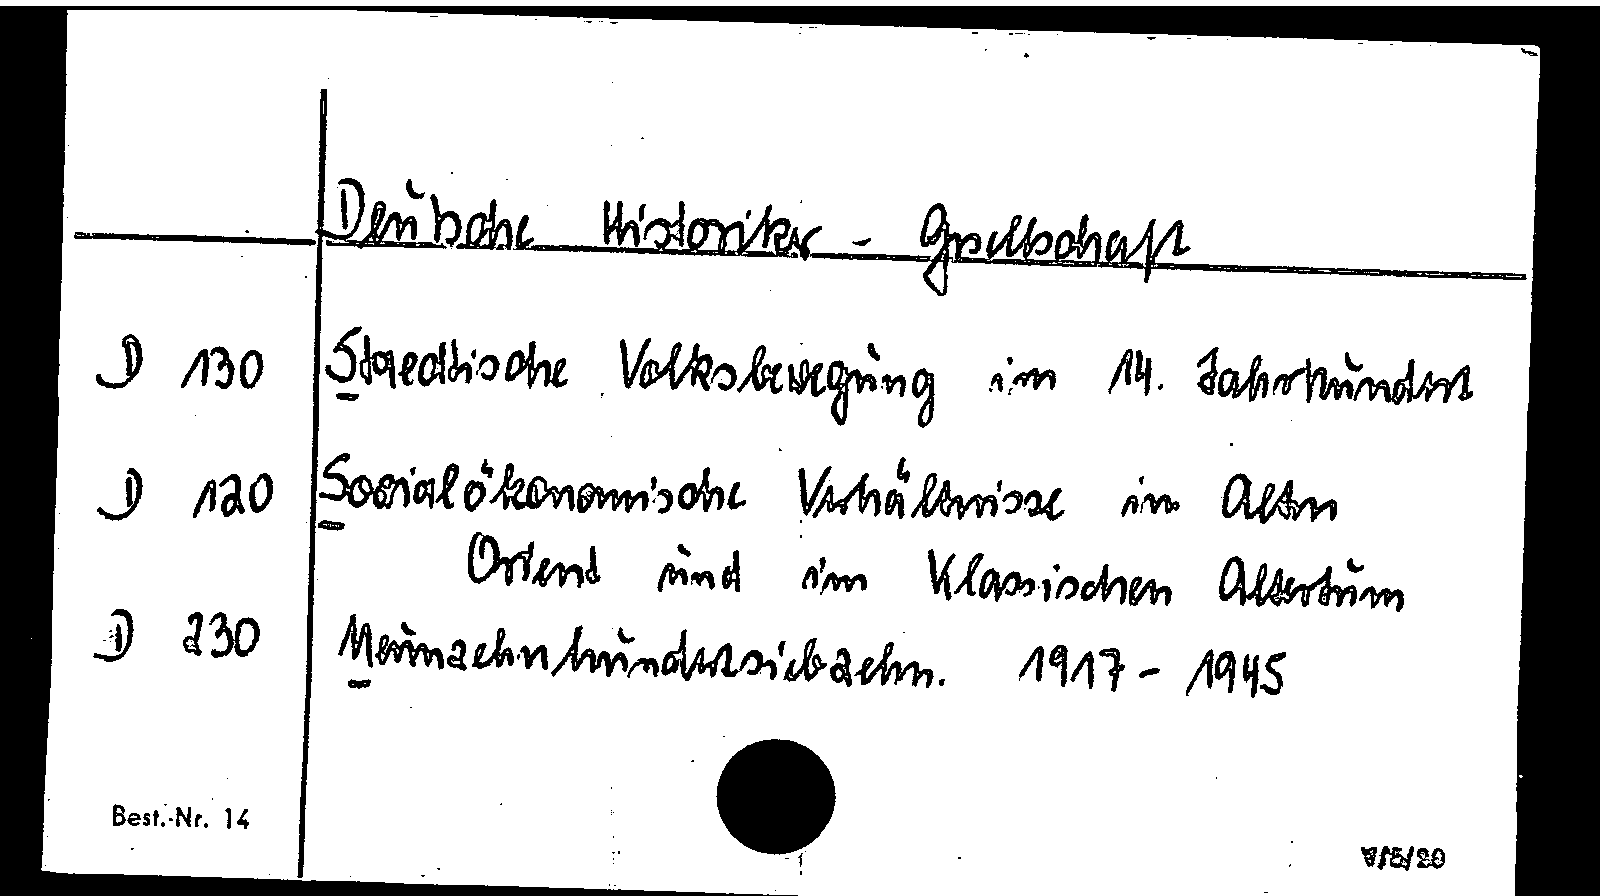 Deutsche Historiker-Gesellschaft
D 130 Staedtische Volksbewegung im 14. Jahrhundert
D 120 Sozialökonomische Verhältnisse im Alten
Orient und im Klassischen Altertum
D 230 Neunzehnhundertsiebzehn. 1917-1945
Best.-Nr. 14